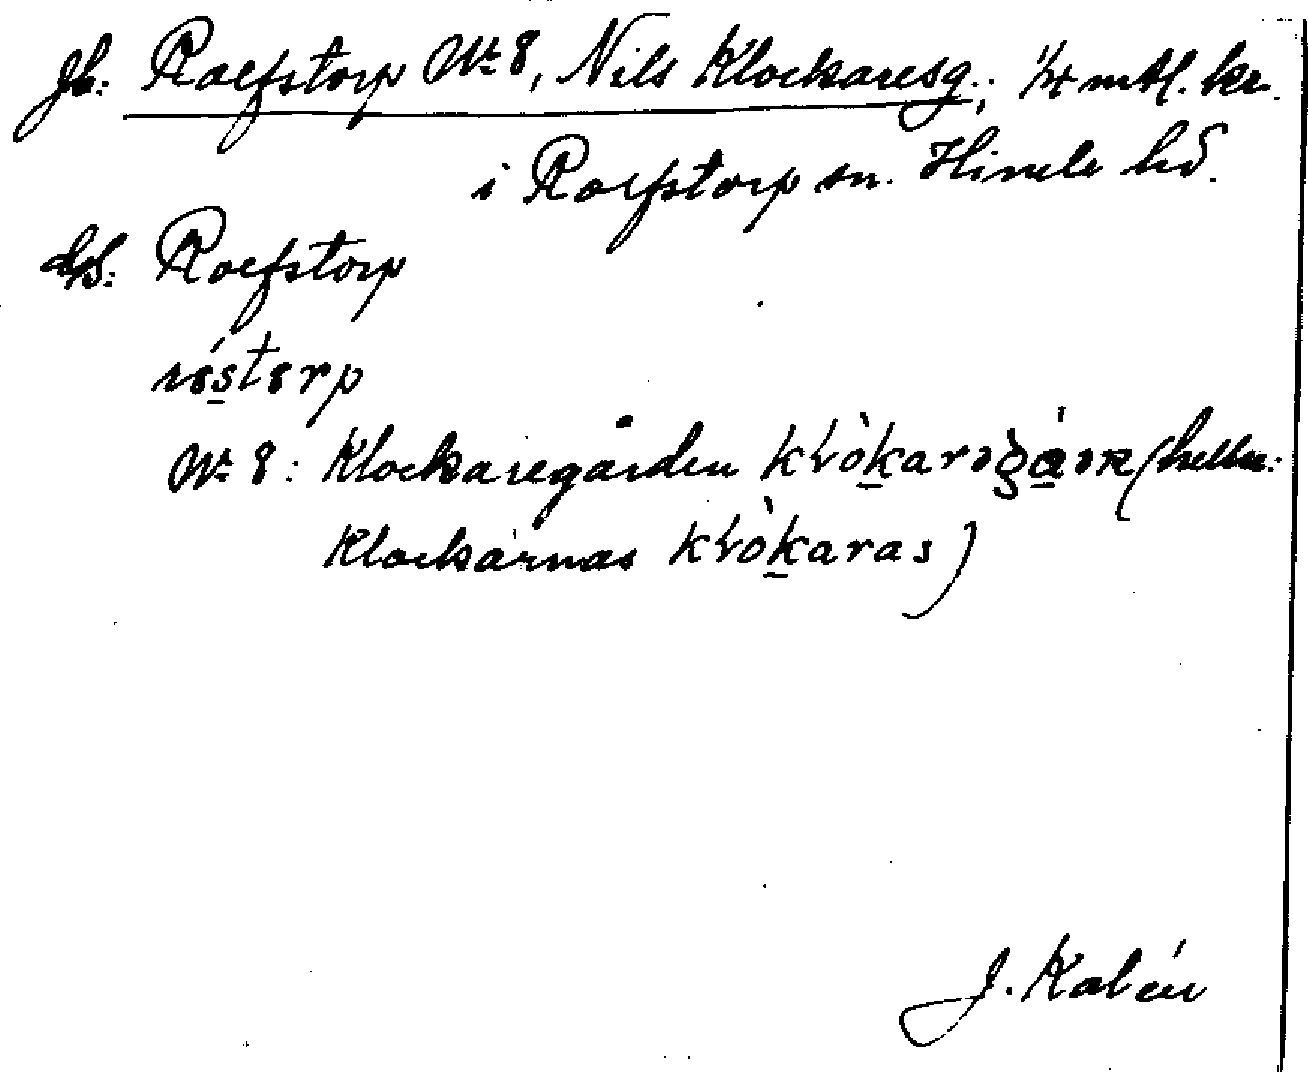 Jb: Rolfstorp Nr 8, Nils Klockaresg.; 1/4 mtl. kr.
i Rolfstorp sn. Himle hd.
Rolfstorp
Nr 8: Klockaregården (hellre:
Klockarnas kɷòkaras)
J. Kalén